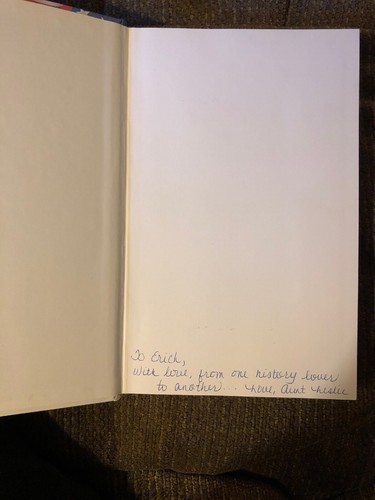 To Erich,
With love, from one history lover
to another... Love, Aunt Leslie